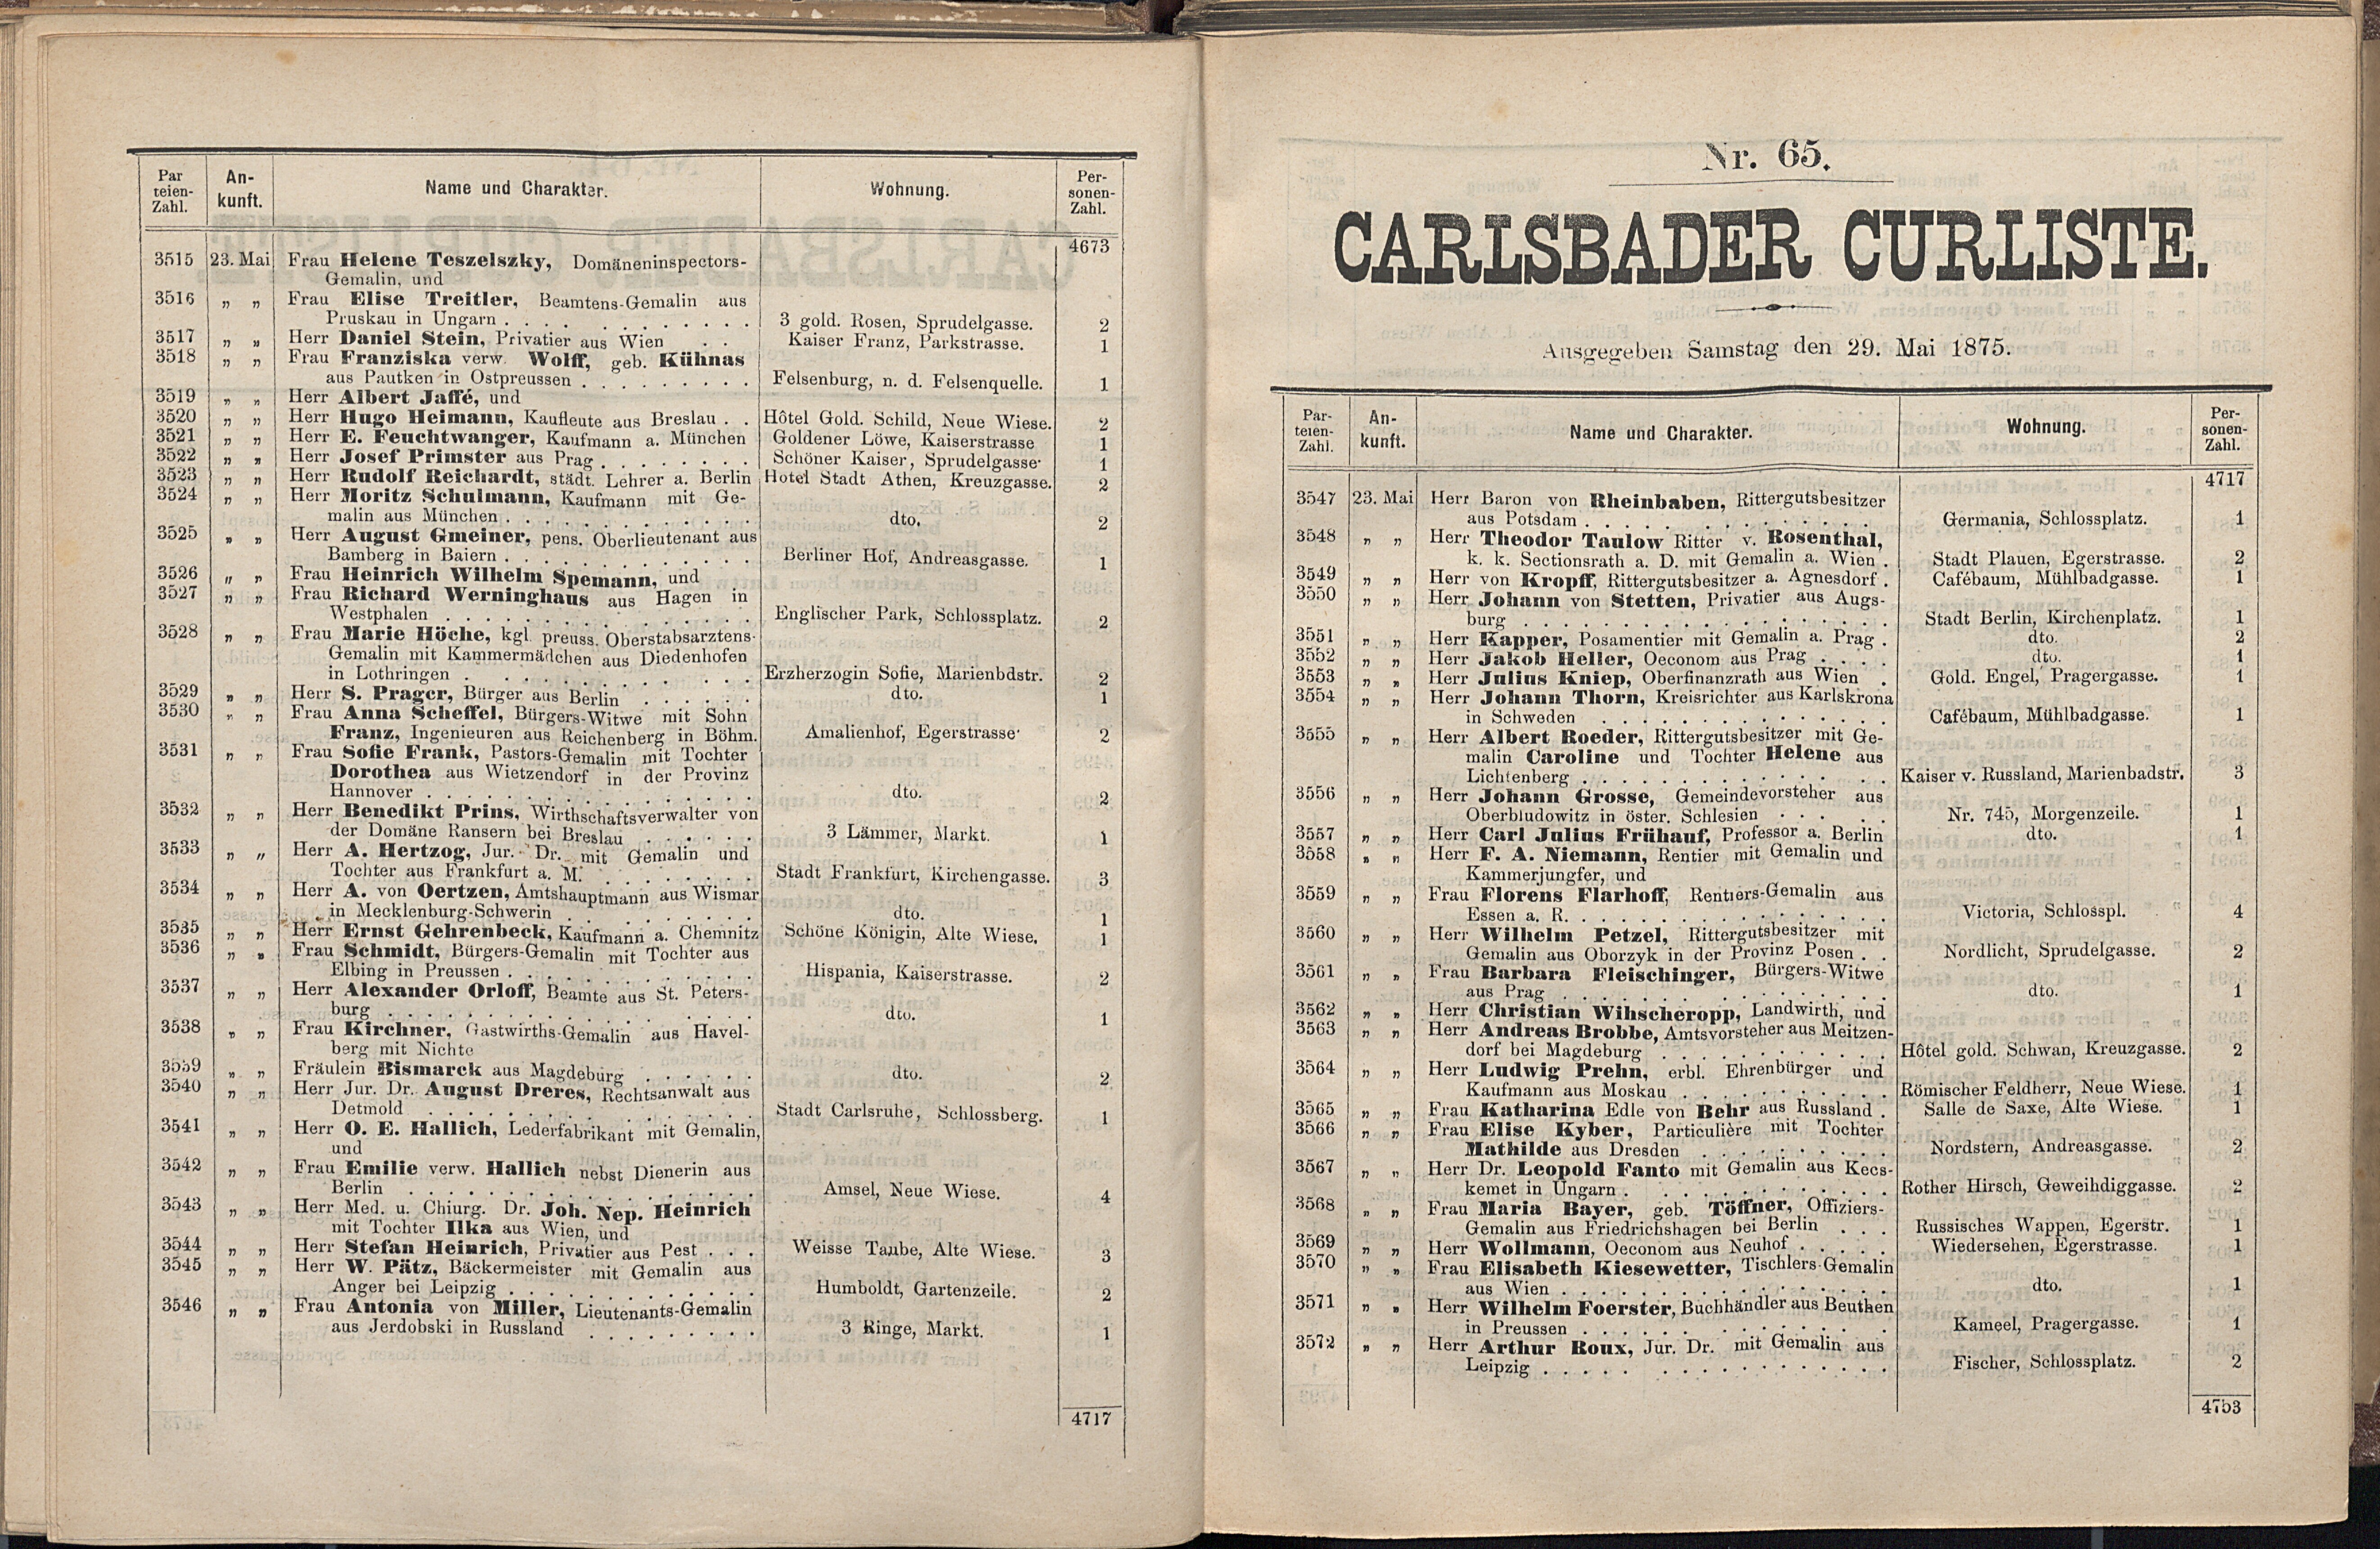 Par
teien-
Zahl.
An-
kunft.
Name und Charakter.
Wohnung.
Per-
sonen-
Zahl.
4673
3515 23. Mai Frau Helene Teszelszky, Domäneninspectors-
Gemalin, und
3516 „ „ Frau Elise Treitler, Beamtens-Gemalin aus
Pruskau in Ungarn . . . . . . . . . . . . 3 gold. Rosen, Sprudelgasse. 2
3517 „ „ Herr Daniel Stein, Privatier aus Wien . . Kaiser Franz, Parkstrasse. 1
3518 „ „ Frau Franziska verw. Wolff, geb. Kühnas
aus Pautken in Ostpreussen . . . . . . . . . Felsenburg, n. d. Felsenquelle. 1
3519 „ „ Herr Albert Jaffé, und
3520 „ „ Herr Hugo Heimann, Kaufleute aus Breslau . . Hôtel Gold. Schild, Neue Wiese. 2
3521 „ „ Herr E. Feuchtwanger, Kaufmann a. München Goldener Löwe, Kaiserstrasse 1
3522 „ „ Herr Josef Primster aus Prag . . . . . . . . Schöner Kaiser, Sprudelgasse. 1
3523 „ „ Herr Rudolf Reichardt, städt. Lehrer a. Berlin Hotel Stadt Athen, Kreuzgasse. 2
3524 „ „ Herr Moritz Schulmann, Kaufmann mit Ge-
malin aus München . . . . . . . . . . . . . dto. 2
3525 „ „ Herr August Gmeiner, pens. Oberlieutenant aus
Bamberg in Baiern . . . . . . . . . . . . . Berliner Hof, Andreasgasse. 1
3526 „ „ Frau Heinrich Wilhelm Spemann, und
3527 „ „ Frau Richard Werninghaus aus Hagen in
Westphalen . . . . . . . . . . . . . . . . Englischer Park, Schlossplatz. 2
3528 „ „ Frau Marie Höche, kgl. preuss. Oberstabsarztens-
Gemalin mit Kammermädchen aus Diedenhofen
in Lothringen . . . . . . . . . . . . . . Erzherzogin Sofie, Marienbdstr. 2
3529 „ „ Herr S. Prager, Bürger aus Berlin . . . . . . dto. 1
3530 „ „ Frau Anna Scheffel, Bürgers-Witwe mit Sohn
Franz, Ingenieuren aus Reichenberg in Böhm. Amalienhof, Egerstrasse. 2
3531 „ „ Frau Sofie Frank, Pastors-Gemalin mit Tochter
Dorothea aus Wietzendorf in der Provinz
Hannover . . . . . . . . . . . . . . . . . dto. 2
3532 „ „ Herr Benedikt Prins, Wirthschaftsverwalter von
der Domäne Ransern bei Breslau . . . . . . 3 Lämmer, Markt. 1
3533 „ „ Herr A. Hertzog, Jur. Dr. mit Gemalin und
Tochter aus Frankfurt a. M. . . . . . . . . Stadt Frankfurt, Kirchengasse. 3
3534 „ „ Herr A. von Oertzen, Amtshauptmann aus Wismar
in Mecklenburg-Schwerin . . . . . . . . . . dto. 1
3535 „ „ Herr Ernst Gehrenbeck, Kaufmann a. Chemnitz Schöne Königin, Alte Wiese. 1
3536 „ „ Frau Schmidt, Bürgers-Gemalin mit Tochter aus
Elbing in Preussen . . . . . . . . . . . . . Hispania, Kaiserstrasse. 2
3537 „ „ Herr Alexander Orloff, Beamte aus St. Peters-
burg . . . . . . . . . . . . . . . . . . . dto. 1
3538 „ „ Frau Kirchner, Gastwirths-Gemalin aus Havel-
berg mit Nichte
3539 „ „ Fräulein Bismarck aus Magdeburg . . . . . . dto. 2
3540 „ „ Herr Jur. Dr. August Dreres, Rechtsanwalt aus
Detmold . . . . . . . . . . . . . . . . . Stadt Carlsruhe, Schlossberg. 1
3541 „ „ Herr O. E. Hallich, Lederfabrikant mit Gemalin,
und
3542 „ „ Frau Emilie verw. Hallich nebst Dienerin aus
Berlin . . . . . . . . . . . . . . . . . . Amsel, Neue Wiese. 4
3543 „ „ Herr Med. u. Chiurg. Dr. Joh. Nep. Heinrich
mit Tochter Ilka aus Wien, und
3544 „ „ Herr Stefan Heinrich, Privatier aus Pest . . . Weisse Taube, Alte Wiese. 3
3545 „ „ Herr W. Pätz, Bäckermeister mit Gemalin aus
Anger bei Leipzig . . . . . . . . . . . . . Humboldt, Gartenzeile. 2
3546 „ „ Frau Antonia von Miller, Lieutenants-Gemalin
aus Jerdobski in Russland . . . . . . . . . 3 Ringe, Markt. 1
4717
Nr. 65.
CARLSBADER CURLISTE.
Ausgegeben Samstag den 29. Mai 1875.
Par-
teien-
Zahl.
An-
kunft.
Name und Charakter.
Wohnung.
Per-
sonen-
Zahl.
4717
3547 23. Mai Herr Baron von Rheinbaben, Rittergutsbesitzer
aus Potsdam . . . . . . . . . . . . . . . Germania, Schlossplatz. 1
3548 „ „ Herr Theodor Taulow Ritter v. Rosenthal,
k. k. Sectionsrath a. D. mit Gemalin a. Wien . Stadt Plauen, Egerstrasse. 2
3549 „ „ Herr von Kropff, Rittergutsbesitzer a. Agnesdorf . Cafébaum, Mühlbadgasse. 1
3550 „ „ Herr Johann von Stetten, Privatier aus Augs-
burg . . . . . . . . . . . . . . . . . . . Stadt Berlin, Kirchenplatz. 1
3551 „ „ Herr Kapper, Posamentier mit Gemalin a. Prag . dto. 2
3552 „ „ Herr Jakob Heller, Oeconom aus Prag . . . . dto. 1
3553 „ „ Herr Julius Kniep, Oberfinanzrath aus Wien . Gold. Engel, Pragergasse. 1
3554 „ „ Herr Johann Thorn, Kreisrichter aus Karlskrona
in Schweden . . . . . . . . . . . . . . . Cafébaum, Mühlbadgasse. 1
3555 „ „ Herr Albert Roeder, Rittergutsbesitzer mit Ge-
malin Caroline und Tochter Helene aus
Lichtenberg . . . . . . . . . . . . . . . . Kaiser v. Russland, Marienbadstr. 3
3556 „ „ Herr Johann Grosse, Gemeindevorsteher aus
Oberbludowitz in öster. Schlesien . . . . . Nr. 745, Morgenzeile. 1
3557 „ „ Herr Carl Julius Frühauf, Professor a. Berlin dto. 1
3558 „ „ Herr F. A. Niemann, Rentier mit Gemalin und
Kammerjungfer, und
3559 „ „ Frau Florens Flarhoff, Rentiers-Gemalin aus
Essen a. R. . . . . . . . . . . . . . . . . Victoria, Schlosspl. 4
3560 „ „ Herr Wilhelm Petzel, Rittergutsbesitzer mit
Gemalin aus Oborzyk in der Provinz Posen . . Nordlicht, Sprudelgasse. 2
3561 „ „ Frau Barbara Fleischinger, Bürgers-Witwe
aus Prag . . . . . . . . . . . . . . . . . dto. 1
3562 „ „ Herr Christian Wihscheropp, Landwirth, und
3563 „ „ Herr Andreas Brobbe, Amtsvorsteher aus Meitzen-
dorf bei Magdeburg . . . . . . . . . . . . Hôtel gold. Schwan, Kreuzgasse. 2
3564 „ „ Herr Ludwig Prehn, erbl. Ehrenbürger und
Kaufmann aus Moskau . . . . . . . . . . . Römischer Feldherr, Neue Wiese. 1
3565 „ „ Frau Katharina Edle von Behr aus Russland . Salle de Saxe, Alte Wiese. 1
3566 „ „ Frau Elise Kyber, Particulière mit Tochter
Mathilde aus Dresden . . . . . . . . . . Nordstern, Andreasgasse. 2
3567 „ „ Herr Dr. Leopold Fanto mit Gemalin aus Kecs-
kemet in Ungarn . . . . . . . . . . . . . Rother Hirsch, Geweihdiggasse. 2
3568 „ „ Frau Maria Bayer, geb. Töffner, Offiziers-
Gemalin aus Friedrichshagen bei Berlin . . . Russisches Wappen, Egerstr. 1
3569 „ „ Herr Wollmann, Oeconom aus Neuhof . . . . . Wiedersehen, Egerstrasse. 1
3570 „ „ Frau Elisabeth Kiesewetter, Tischlers-Gemalin
aus Wien . . . . . . . . . . . . . . . . . dto. 1
3571 „ „ Herr Wilhelm Foerster, Buchhändler aus Beuthen
in Preussen . . . . . . . . . . . . . . . . Kameel, Pragergasse. 1
3572 „ „ Herr Arthur Roux, Jur. Dr. mit Gemalin aus
Leipzig . . . . . . . . . . . . . . . . . Fischer, Schlossplatz. 2
4753